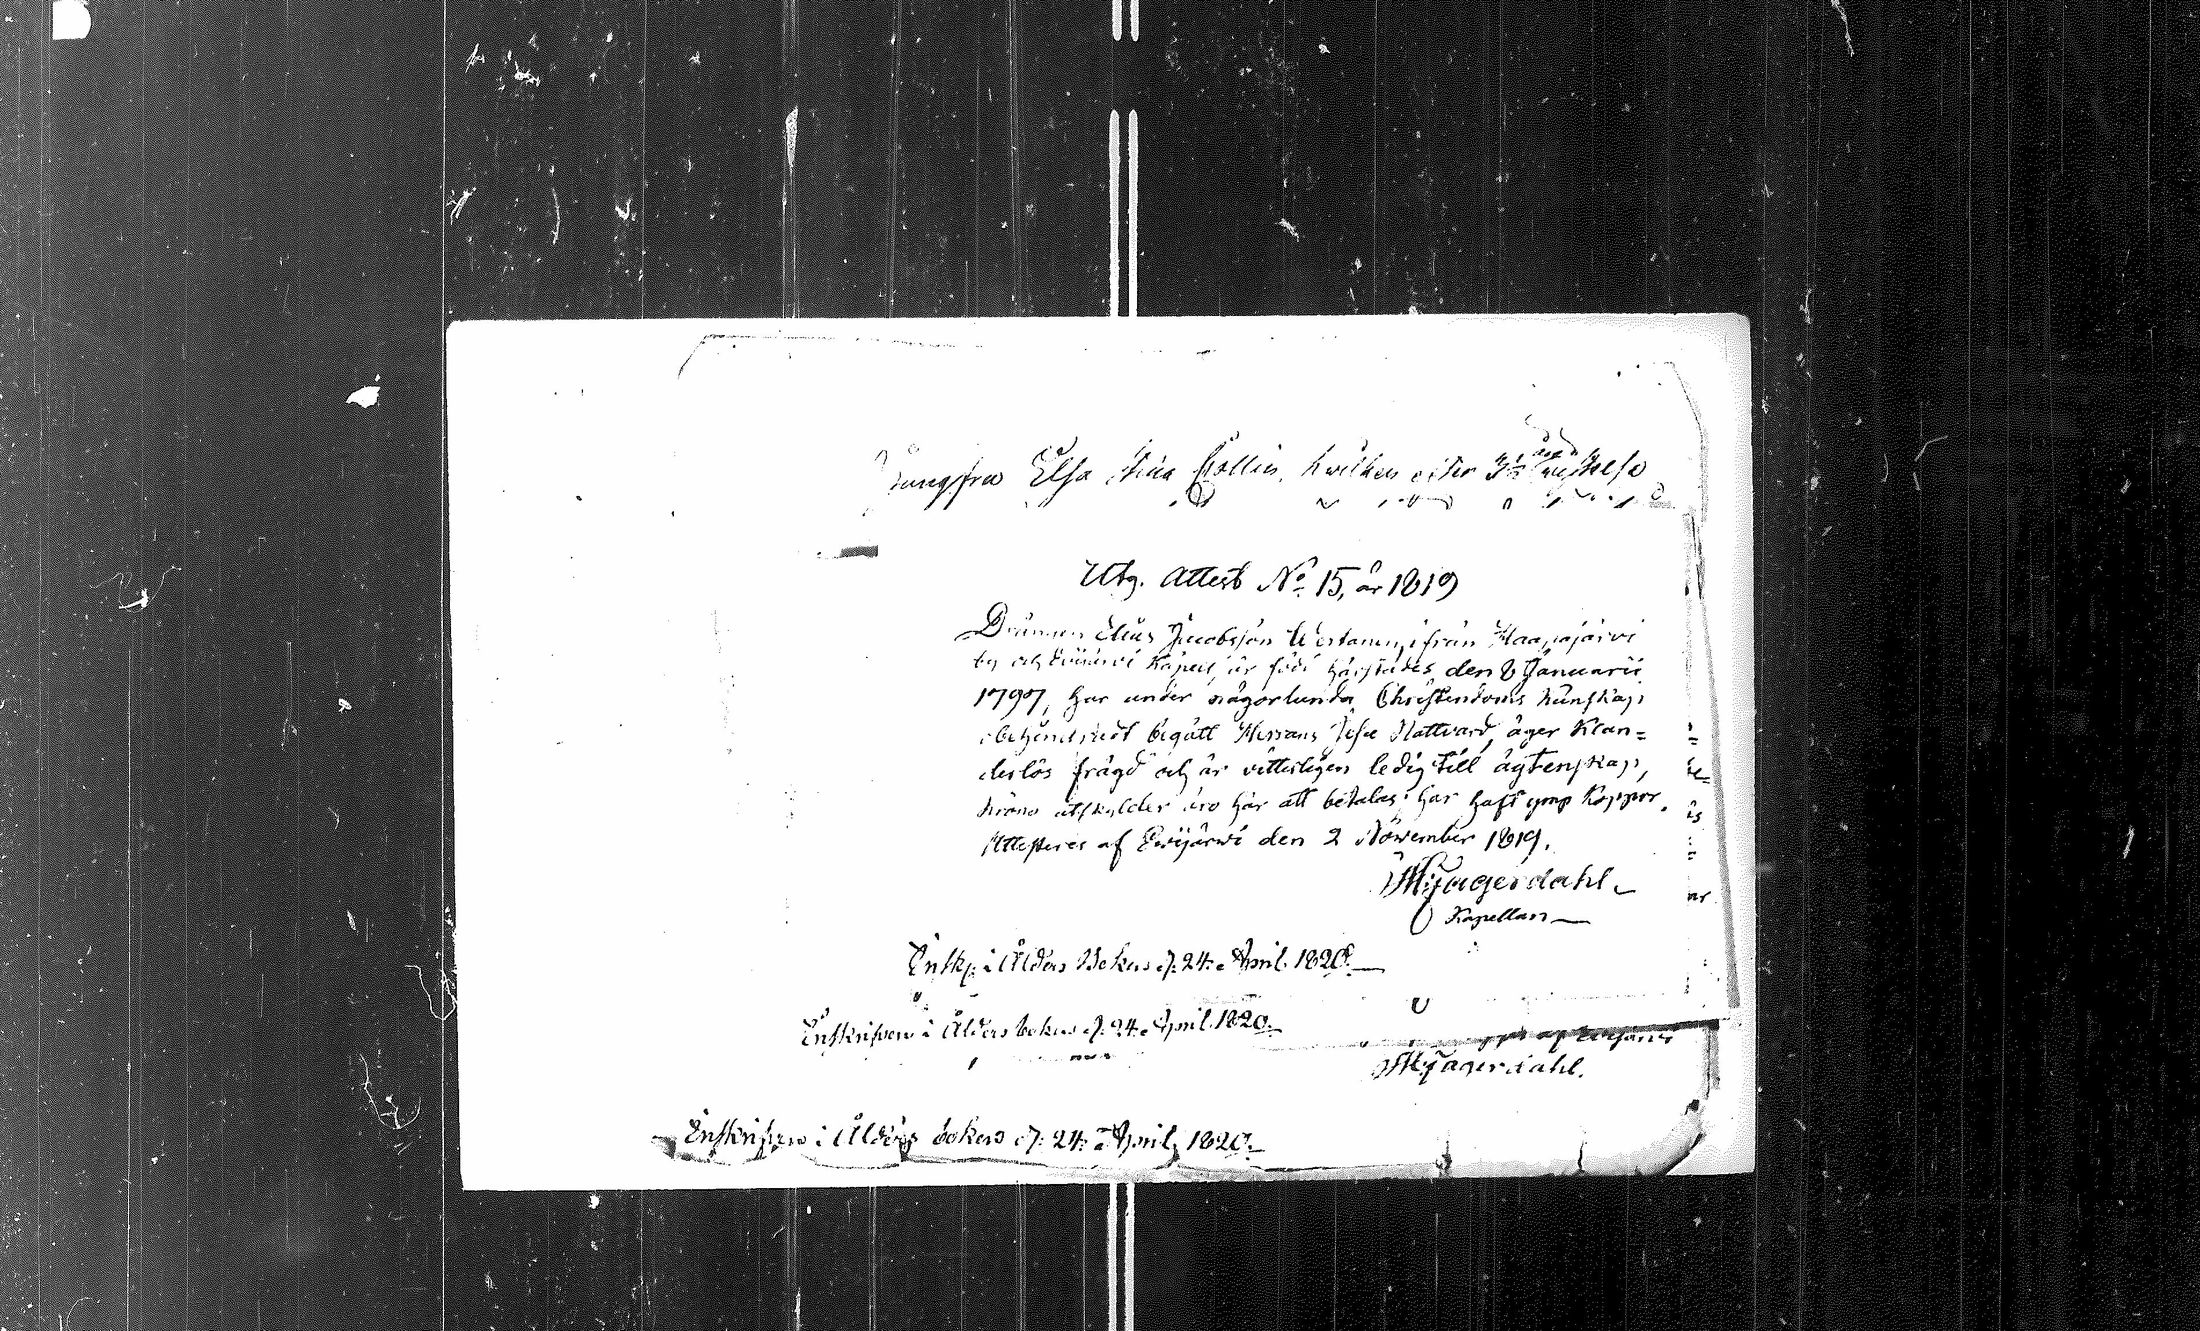 Jungfru Elsa Stina Collin, hwilken efter 3½ års wistelse
Utg. Attest N:o 15, år 1819
Drängen Elias Jacobsson Westaminj ifrån Haapajärvi
by och Evijärvi Kapell, är född härstädes den 8 Januarii
1797, har under någorlunda Christendoms kunskap
obehindradt begått Herrans Höga Nattvard, äger Klan=
derlös frägd och är vitterligen ledig till ägtenskap,
krono utskylder äro här att betalas; har haft ymp Koppor.
Attesteras af Ewijärwi den 2 November 1819.
Fagerdahl
Kapellan
Enskp: i Ålders Boken d. 24 April 1820.
Enskrifven i Ålders boken d. 24 April 1820.
Fagerdahl.
Enskrifven i Ålders boken d. 24 April 1820.